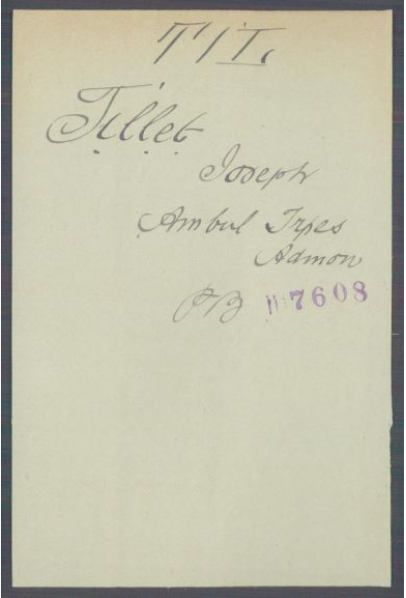 TIL
Tillet
Joseph
Ambul Trpes
Admon
PB 7608